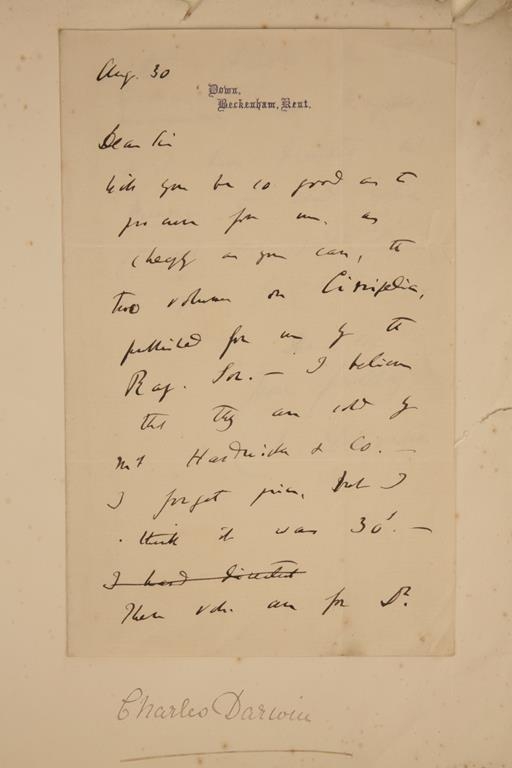 Aug. 30
Down,
Beckenham, Kent.
Dear Sir
Will you be so good as to
procure for me, as
cheaply as you can, the
two volumes on Cirripedia,
published for me by the
Ray. Soc. — I believe
that they are sold by
Mr Hardwicke & Co. —
I forget price, but I
think it was 30s. —
I have directed
These vols. are for Dr.
Charles Darwin